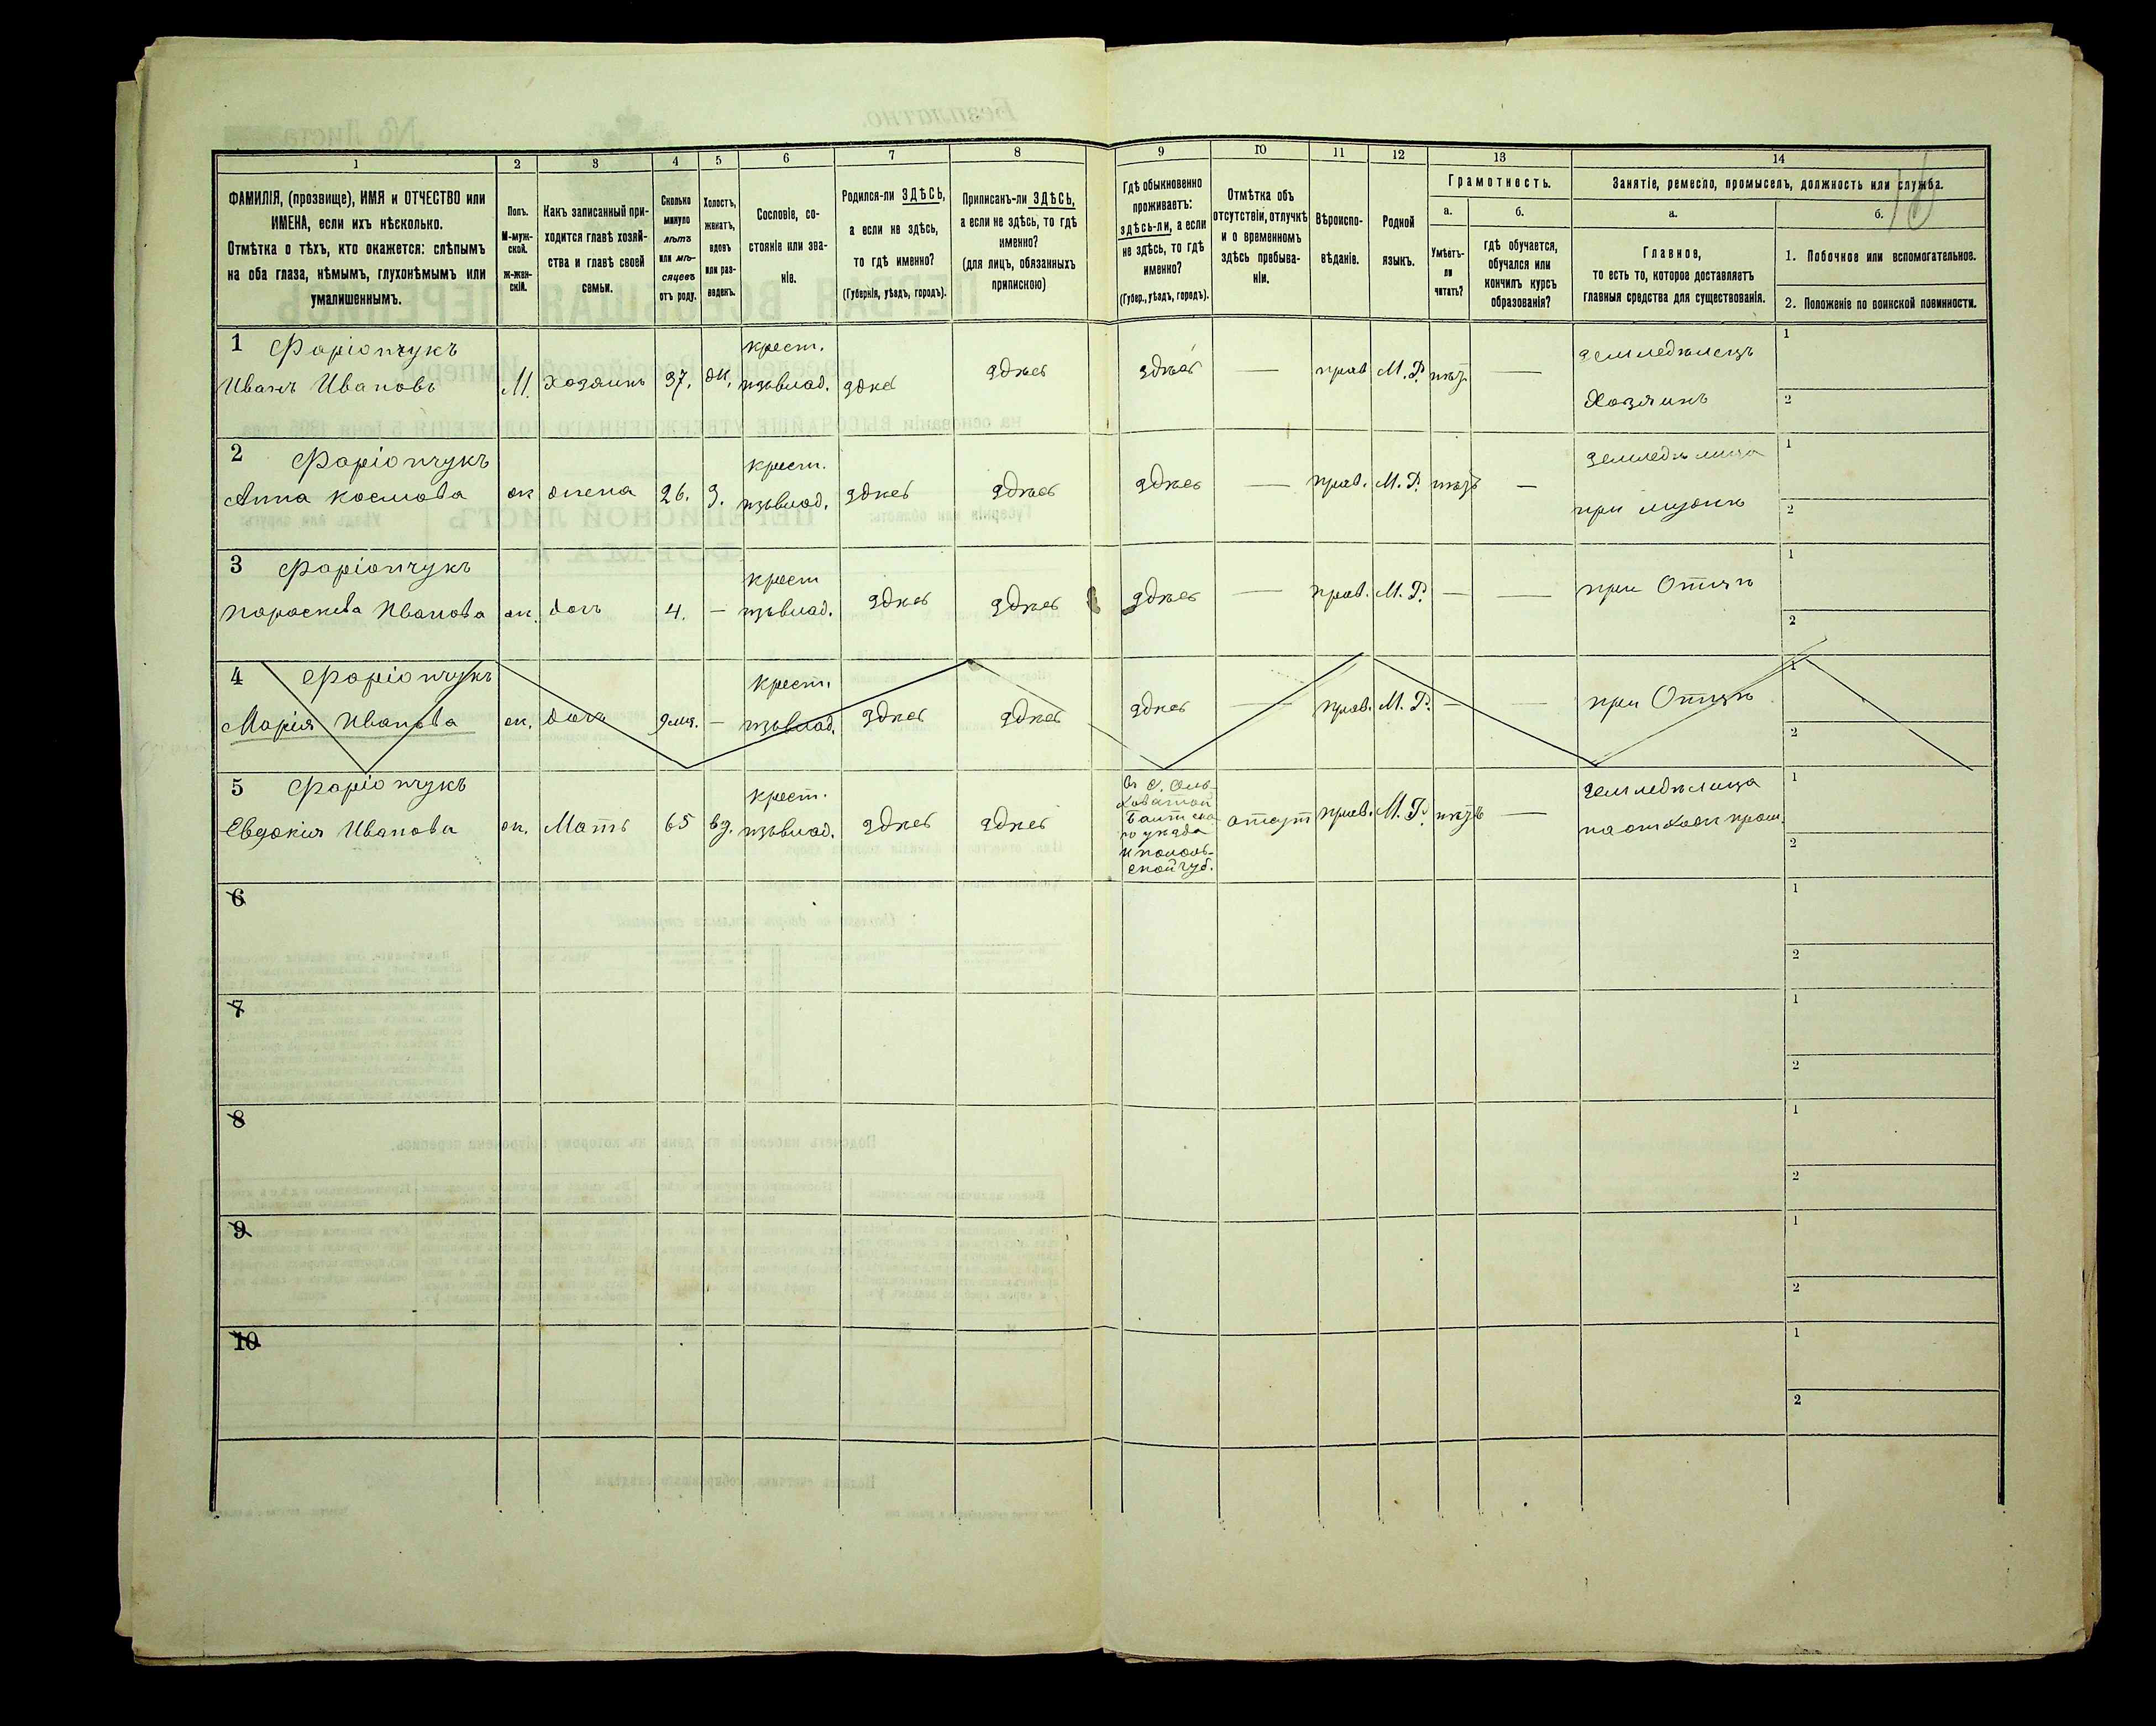 1 2 3 4 5 6 7 8 9 10 11 12 13 14
ФАМИЛІЯ, (прозвище), ИМЯ и ОТЧЕСТВО или
ИМЕНА, если ихъ нѣсколько.
Отмѣтка о тѣхъ, кто окажется: слѣпымъ
на оба глаза, нѣмымъ, глухонѣмымъ или
умалишеннымъ.
Полъ.
М-муж-
ской.
ж-жен-
скій.
Какъ записанный при-
ходится главѣ хозяй-
ства и главѣ своей
семьи.
Сколько
минуло
лѣтъ
или мѣ-
сяцевъ
отъ роду.
Холостъ,
женатъ,
вдовъ
или раз-
веденъ.
Сословіе, со-
стояніе или зва-
ніе.
Родился-ли ЗДѢСЬ,
а если не здѣсь,
то гдѣ именно?
(Губернія, уѣздъ, городъ).
Приписанъ-ли ЗДѢСЬ,
а если не здѣсь, то гдѣ
именно?
(для лицъ, обязанныхъ
припискою)
Гдѣ обыкновенно
проживаетъ:
здѣсь-ли, а если
не здѣсь, то гдѣ
именно?
(Губер., уѣздъ, городъ).
Отмѣтка объ
отсутствіи, отлучкѣ
и о временномъ
здѣсь пребыва-
ніи.
Вѣроиспо-
вѣданіе.
Родной
языкъ.
Грамотность.
а.
Умѣетъ-
ли
читать?
б.
гдѣ обучается,
обучался или
кончилъ курсъ
образованія?
Занятіе, ремесло, промыселъ, должность или служба.
а.
Главное,
то есть то, которое доставляетъ
главныя средства для существованія.
б.
1. Побочное или вспомогательное.
2. Положеніе по воинской повинности.
1 Фаріончукъ
Иванъ Ивановъ М. хозяинъ 37. ж. крест. здѣсь здѣсь здѣсь — прав М. Р. —
земледѣлецъ
Хозяинъ
1
2
2 Фаріончукъ
Анна Космова ж жена 26. З. крест. здѣсь здѣсь здѣсь — прав. М. Р. —
земледѣлица
при мужѣ
1
2
3 Фаріончукъ
Параскева Иванова ж. дочь 4. — крест здѣсь здѣсь здѣсь — прав. М. Р. — —
при Отцѣ
1
2
4 Фаріончукъ
Марія Иванова ж. дочь 9 мѣ. — крест. здѣсь здѣсь здѣсь — прав. М. Р. — —
при Отцѣ
1
2
5 Фаріончукъ
Евдокія Иванова ж. Мать 65 вд. крест. здѣсь здѣсь
въ с. Оль-
ховатой
уѣзда
ской губ.
прав. М. Р. —
земледѣлица
1
2
6 1
2
7 1
2
8 1
2
9 1
2
10 1
2